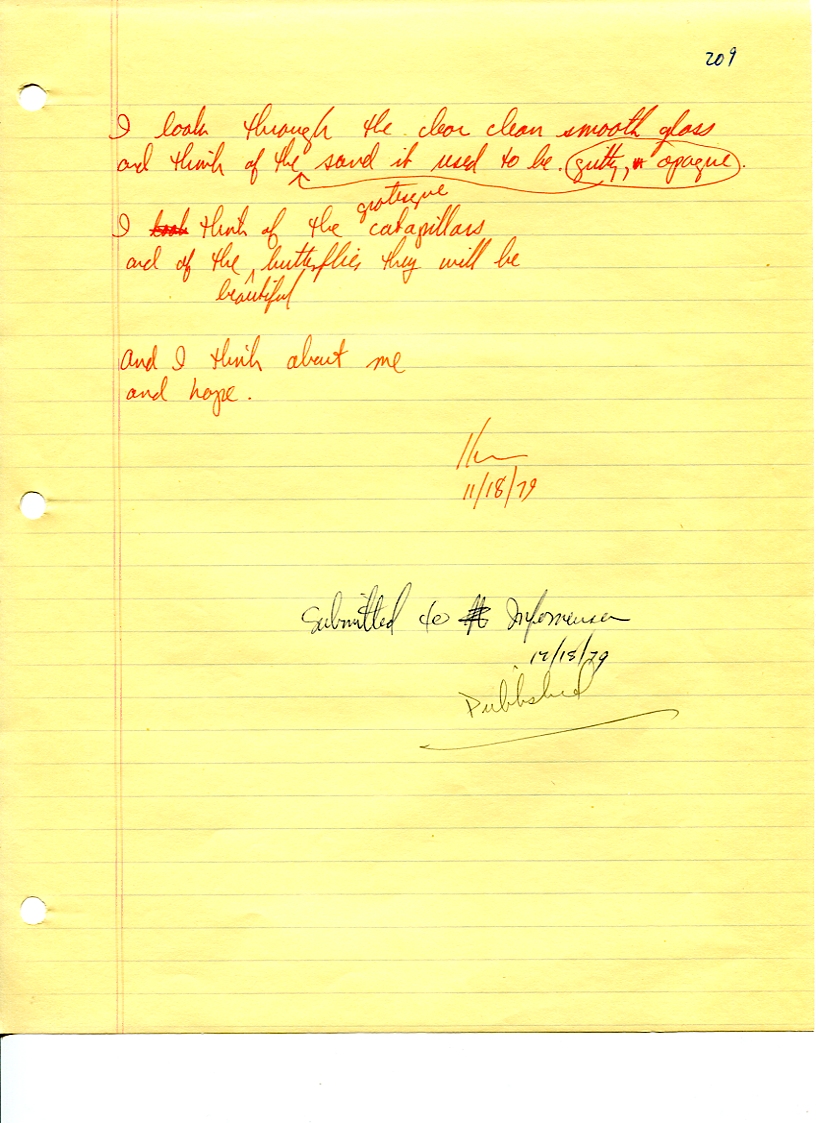 209
I look through the clear clean smooth glass
and think of the sand it used to be. gritty, opaque.
grotesque
I look think of the catapillars
and of the butterflies they will be
beautiful
And I think about me
and hope.
11/18/79
Submitted to
12/15/79
Published